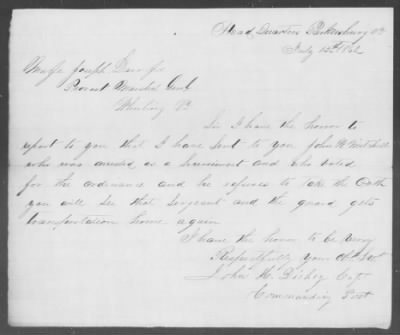 Head Quarters Parkersburg Va
July 15th 1862
Major Joseph Darr Jr
Provost Marshal Genl
Wheeling Va
Sir I have the honor to
report to you that I have sent to you John W
who was arrested as a and who voted
for the ordinance and he refuses to take the Oath
you will see that sergeant and the guard gets
transportation home again
I have the honor to be very
Respectfully your Obt Svt
John H. Dickey Capt
Commanding Post